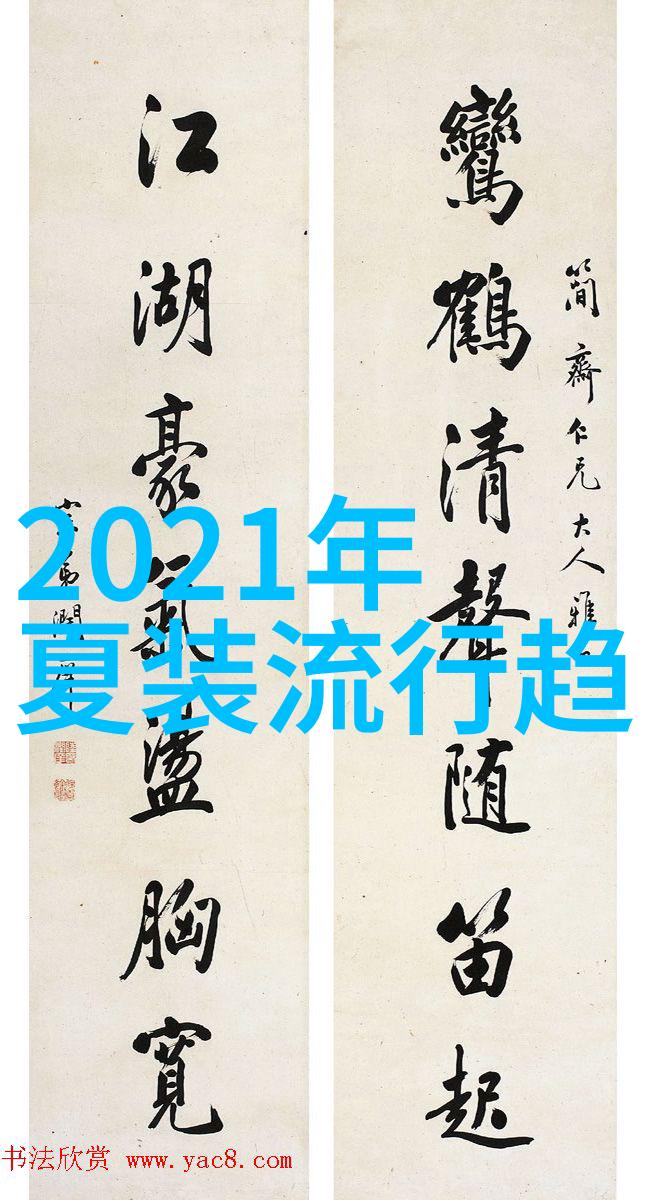 鸞鶴清聲隨笛起
簡齋仁兄大人雅
江湖豪氣盪胸寬
2021年
夏装流行趋
书法欣赏 www.yac8.com